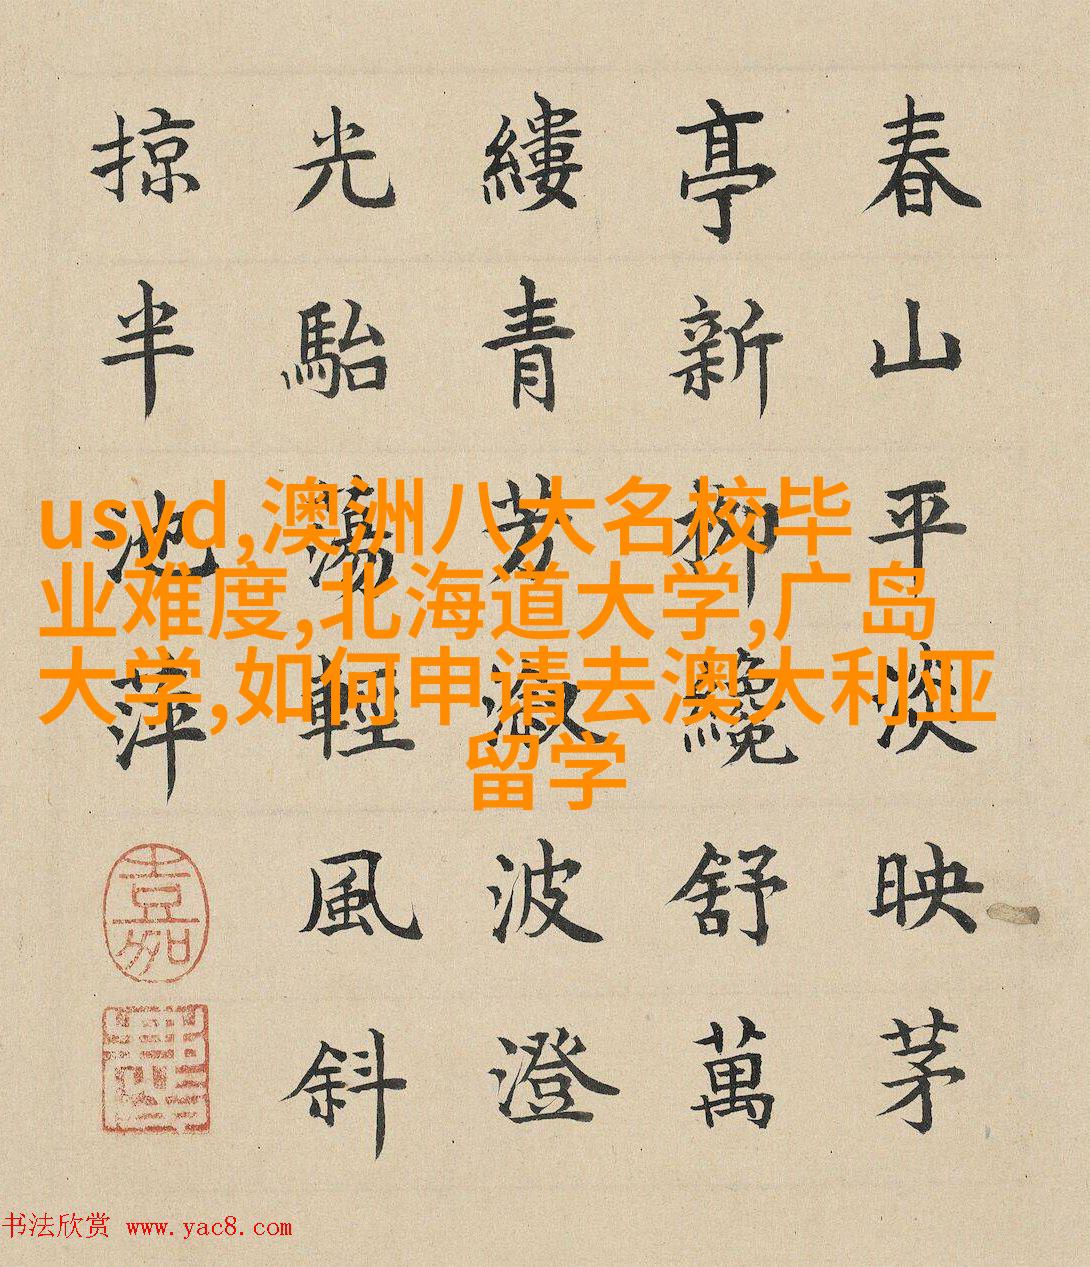 春山平淡映茅
亭新柳纜舒萬
縷青芳淑波澄
光駘蕩輕風斜
掠半池萍
嘉
usyd,澳洲八大名校毕
业难度,北海道大学,广岛
大学,如何申请去澳大利亚
留学
书法欣赏 www.yac8.com